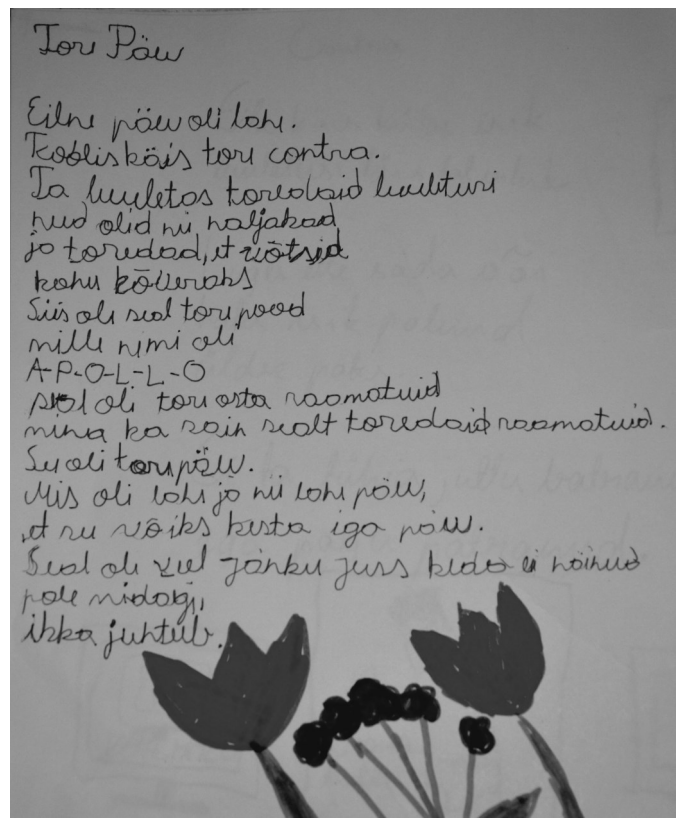 Tore Päev
Eilne päev oli lahe.
Koolis käis tore contra.
Ta luuletas toredaid luuletusi
need olid nii naljakad
ja toredad, et võtsid
kohu kõveraks
Siis oli seal tore pood
mille nimi oli
A-P-O-L-L-O
seal oli tore osta raamatuid
mina ka sain sealt toredaid raamatuid.
See oli tore päev.
Mis oli lahe ja nii lahe päev,
et see võiks kesta iga päev.
Seal oli veel Jänku Juss keda ei näinud
pole midagi,
ikka juhtub.